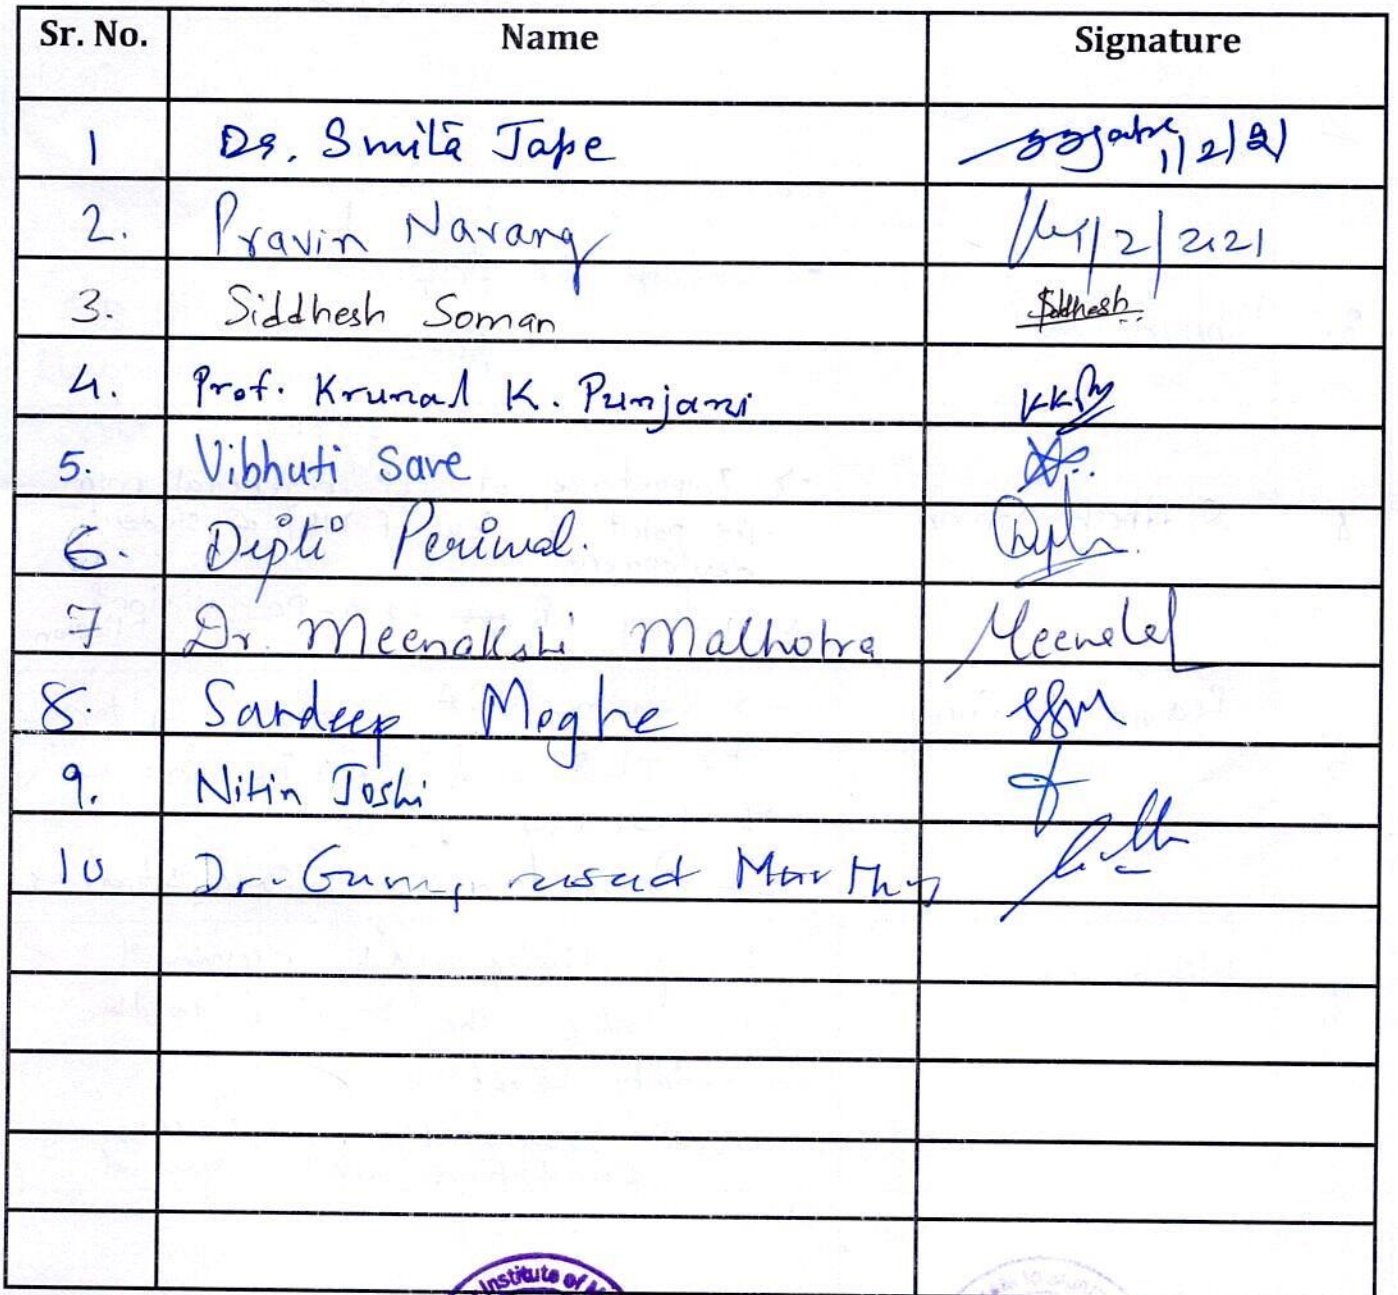 Sr. No. Name Signature
1 Dr. Smita Jape 1/2/21
2. Pravin Narang 1/2/2021
3. Siddhesh Soman Siddhesh
4. Prof. Krunal K. Punjani KKP
5. Vibhuti Save
6. Dipti Periwal. Dipti
7 Dr. Meenakshi Malhotra Meenakshi
8. Sandeep Moghe SSM
9. Nitin Joshi
10 Dr. Guruprasad Murthy
Institute of M